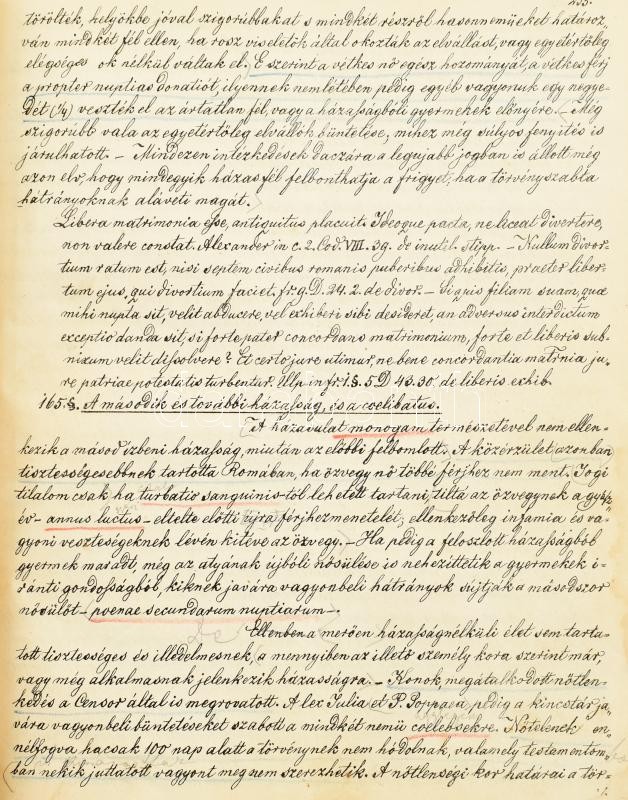 törölték, helyökbe jóval szigorúbbakat s mindkét részről hasonneműeket határoz,
ván mindkét fél ellen, ha rosz viseletök által okozták az elválást, vagy egyetértőleg
elégséges ok nélkül váltak el. E szerint a vétkes nő egész hozományát, a vétkes férj
a propter nuptias donatiót, ilyennek nemlétében pedig egyéb vagyonuk egy negye-
dét (¼) veszték el az ártatlan fél, vagy a házasságbóli gyermekek előnyére. – Még
szigorúbb vala az egyetértőleg elválók büntetése, mihez még súlyos fenyítés is
járulhatott. – Mindezen intézkedések daczára a legujabb jogban is állott még
azon elv, hogy mindegyik házasfél felbonthatja a frigyet, ha a törvényszabta
hátrányoknak aláveti magát.
Libera matrimonia esse, antiquitus placuit. Ideoque pacta, ne liceat divertere,
non valere constat. Alexander in c. 2. Cod. VIII. 39. de inutil. stipp. – Nullum divor-
tium ratum est, nisi septem civibus romanis puberibus adhibitis, praeter liber-
tum ejus, qui divortium faciet. fr. 9. D. 24. 2. de divor. – Si quis filiam suam, quae
mihi nupta sit, velit abducere, vel exhiberi sibi desideret, an adversus interdictum
exceptio danda sit, si forte pater concordans matrimonium, forte et liberis sub-
nixum velit dissolvere? Et certo jure utimur, ne bene concordantia matrnia ju-
re patriae potestatis turbentur. Ulp in fr. 1. §. 5. D 43. 30. de liberis exhib.
165. §. A második és további házasság, és a coelibatus.
A házasulat monogam természetével nem ellen-
kezik a másodízbeni házasság, miután az előbbi felbomlott. A közérzület azonban
tisztességesebbnek tartotta Romában, ha özvegy nő többé férjhez nem ment. Jogi
tilalom csak ha turbatio sanguinis-tól lehetett tartani, tiltá az özvegynek a gyász
év – annus luctus – eltelte előtti újra férjhezmenetelét; ellenkezőleg infamia és va-
gyoni veszteségeknek lévén kitéve az özvegy. – Ha pedig a feloszlott házasságból
gyermek maradt, még az atyának újbóli nősülése is nehezíttetik a gyermekek i-
ránti gondosságból, kiknek javára vagyonbeli hátrányok sújtják a másodszor
nősülőt – poenae secundarum nuptiarum –.
Ellenben a merően házasságnélküli élet sem tarta-
tott tisztességes és illedelmesnek, a mennyiben az illető személy kora szerint már,
vagy még alkalmasnak jelenkezik házasságra. – Konok megátalkodott nőtlen-
kedés a Censor által is megrovatott. A lex Julia et P. Poppaea pedig a kincstár ja-
vára vagyonbeli büntetéseket szabott a mindkét nemü coelebsekre. Nőtelenek en-
nélfogva hacsak 100 nap alatt a törvénynek nem hódolnak, valamely testamentom-
ban nekik juttatott vagyont meg nem szerezhetik. A nőtlenségi kor határai a tör-